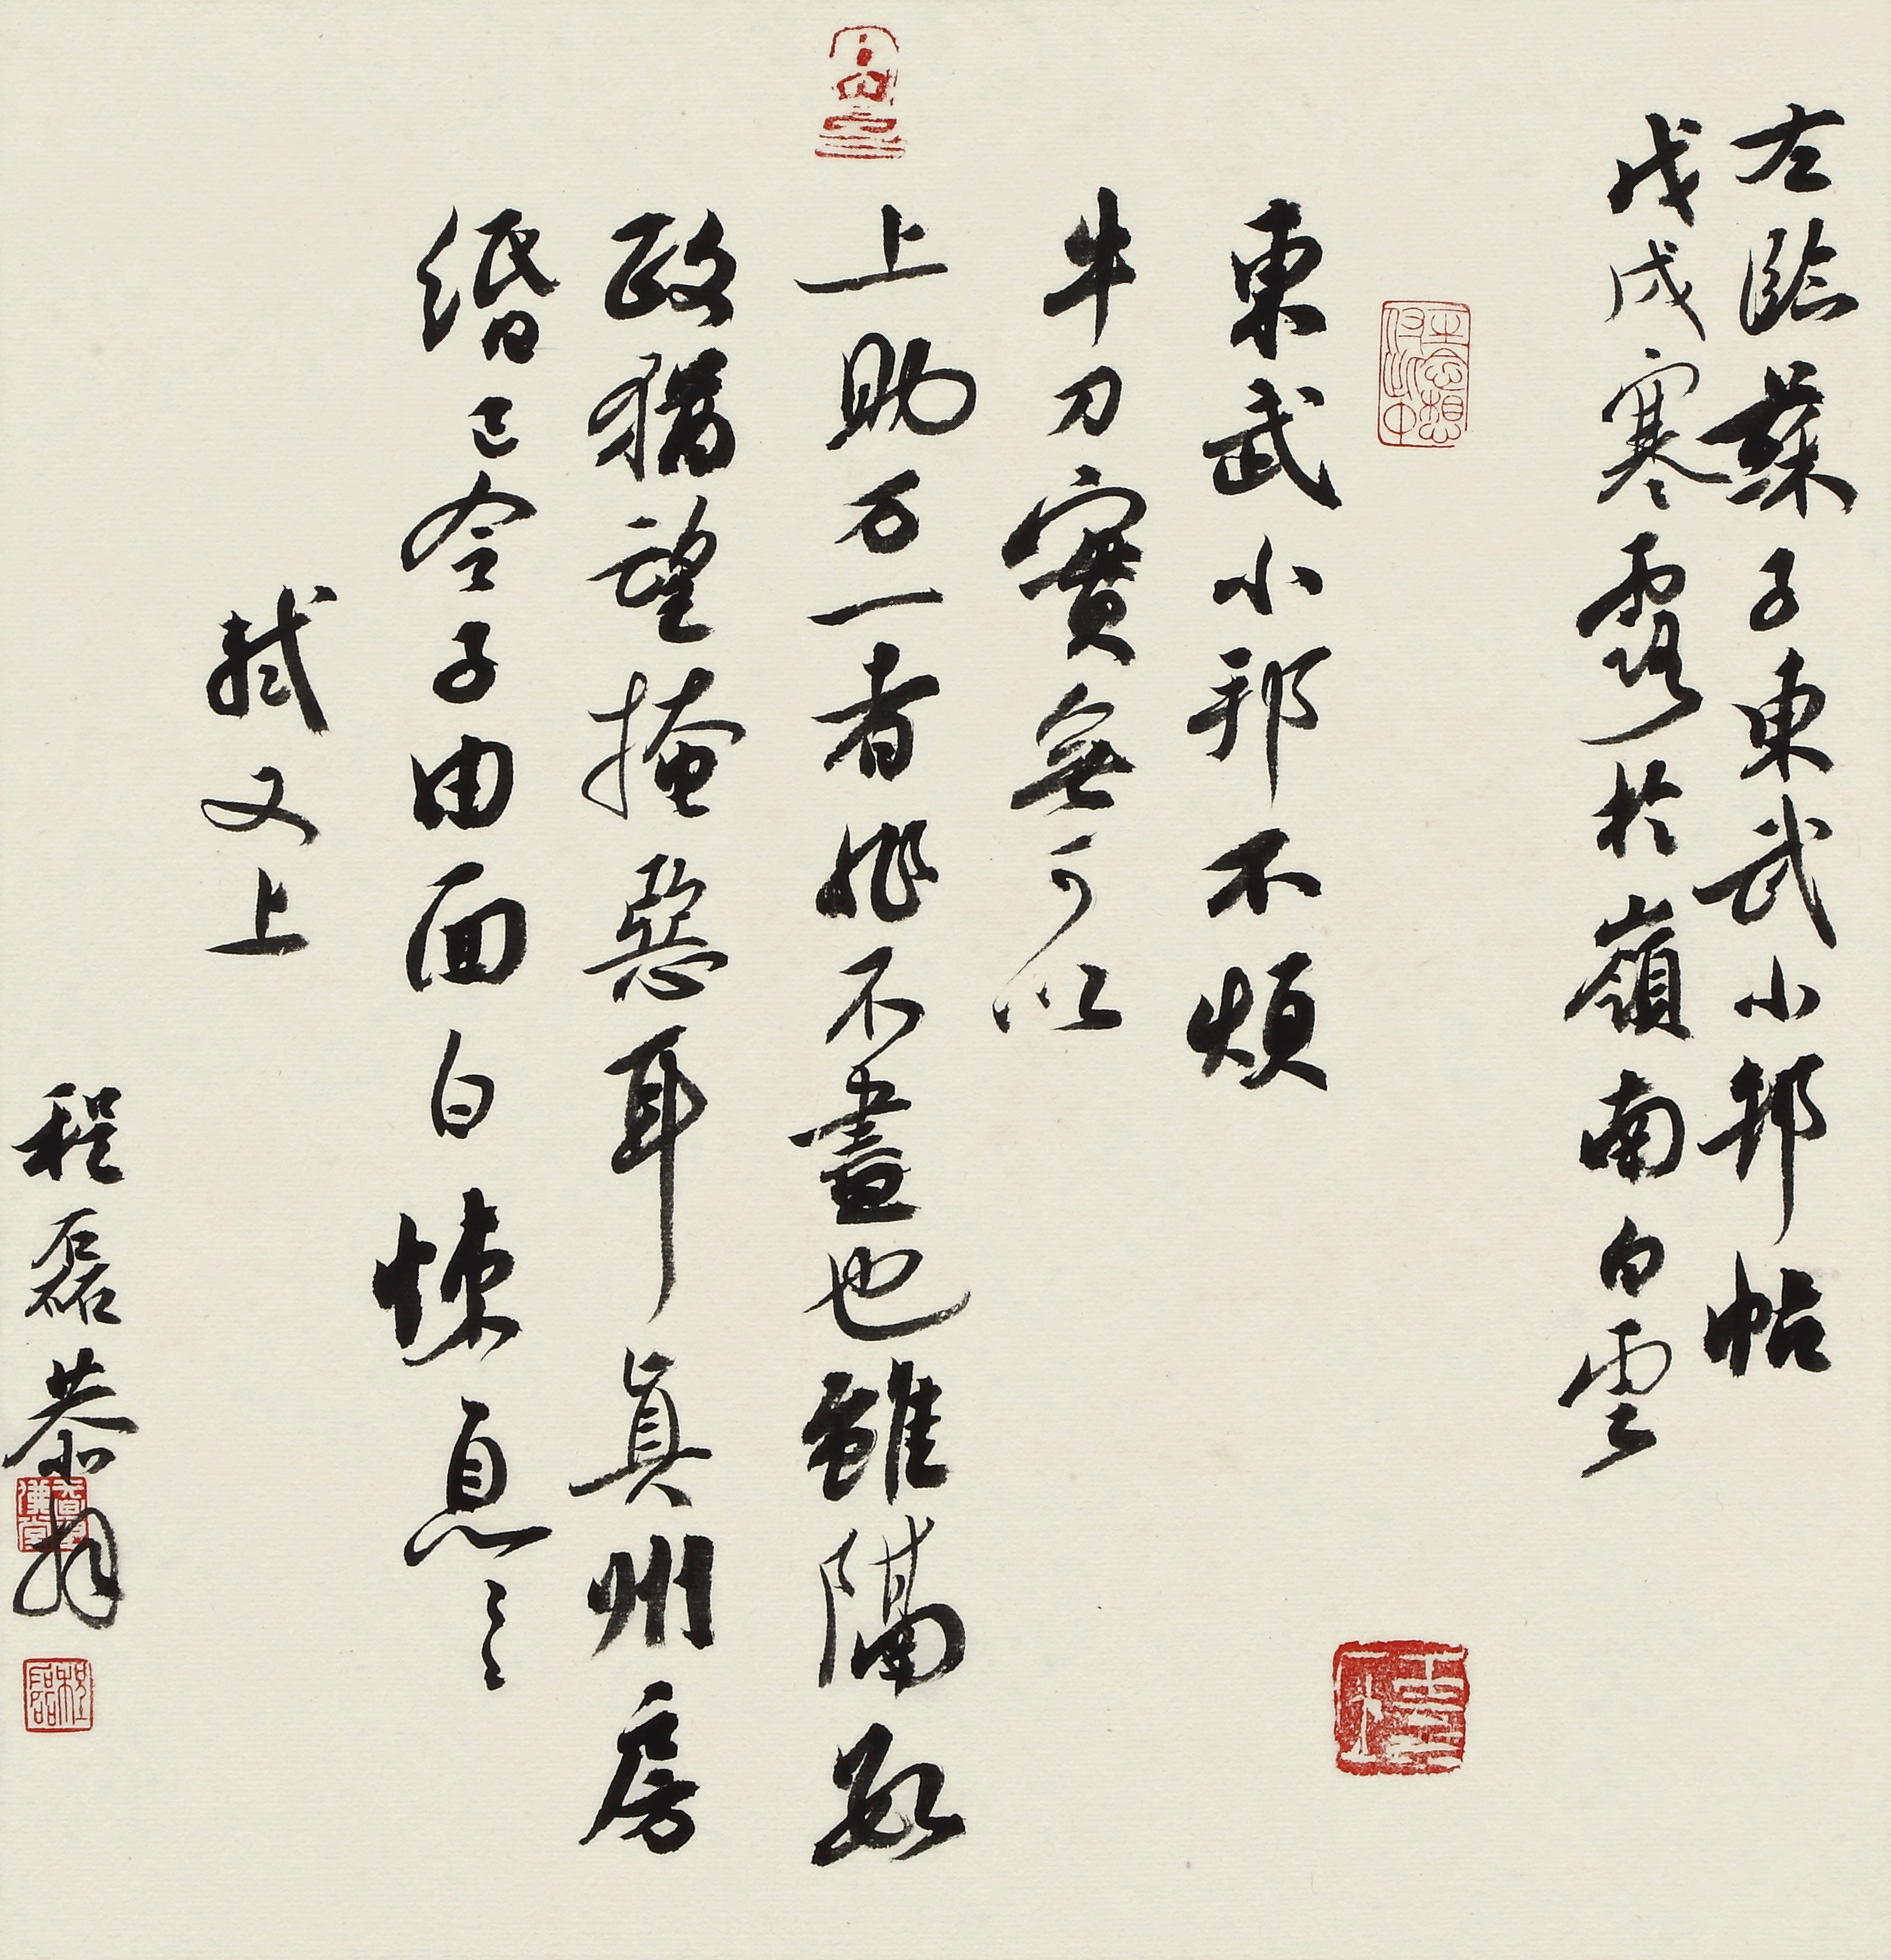 左臨蘇子東武小邦帖
戊戌寒露於嶺南白雲
東武小邦不煩
牛刀實無可以
上助万一者非不盡也雖隔數
政猶望掩惡耳真州房
緡已令子由面白悚息〻
軾又上
程磊恭拜
程磊